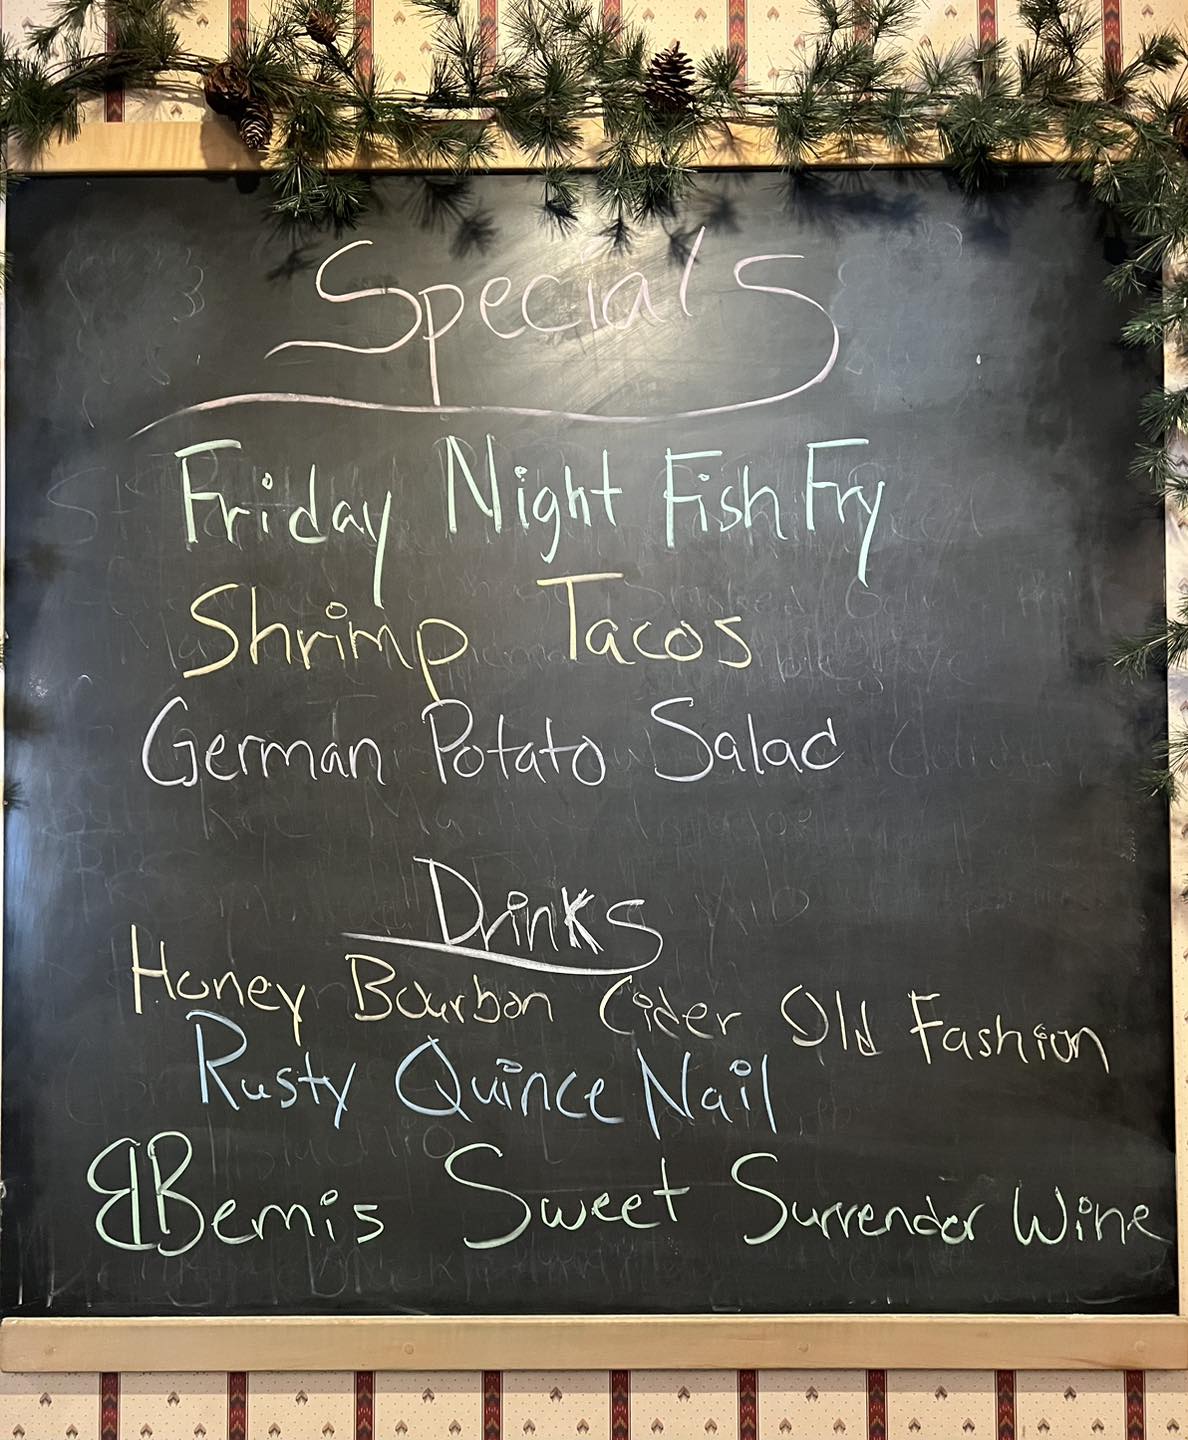 Specials
Friday Night Fish Fry
Shrimp Tacos
German Potato Salad
Drinks
Honey Bourbon Cider Old Fashion
Rusty Quince Nail
BBemis Sweet Surrender Wine